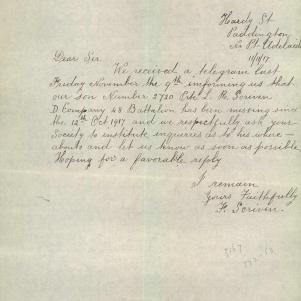 Hardy St
Paddington
Nr Pt Adelaide
11/11/17
Dear Sir
We received a telegram last
Friday November the 9th informing us that
our son Number 2720 Pte L. Scriven
D Company 48 Battalion has been missing since
the 12th Oct 1917 and we respectfully ask your
Society to institute inqueries as to his where-
abouts and let us know as soon as possible
Hoping for a favorable reply
I remain
Yours Faithfully
F. Scriven.